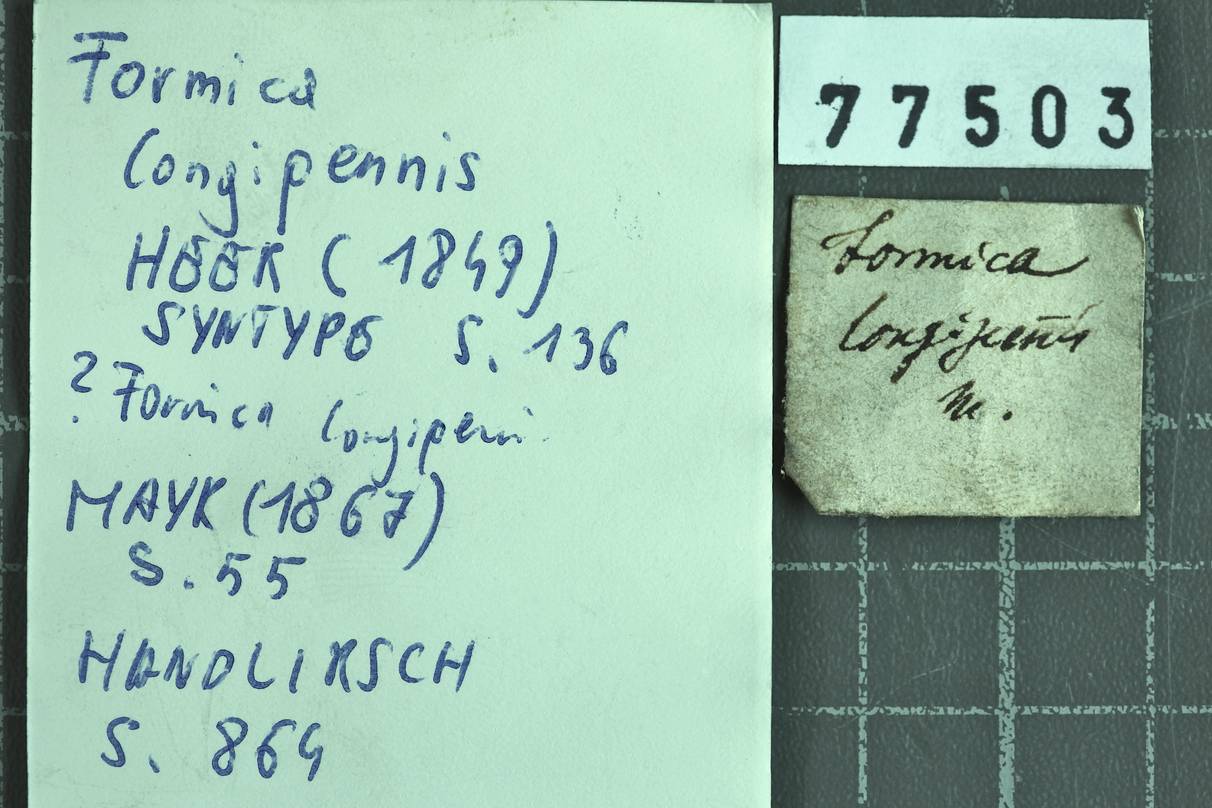 Formica
longipennis
HEER (1849)
SYNTYPE S. 136
? Formica longipenn
MAYR (1867)
S. 55
HANDLIRSCH
S. 864
77503
Formica
longipennis
m.